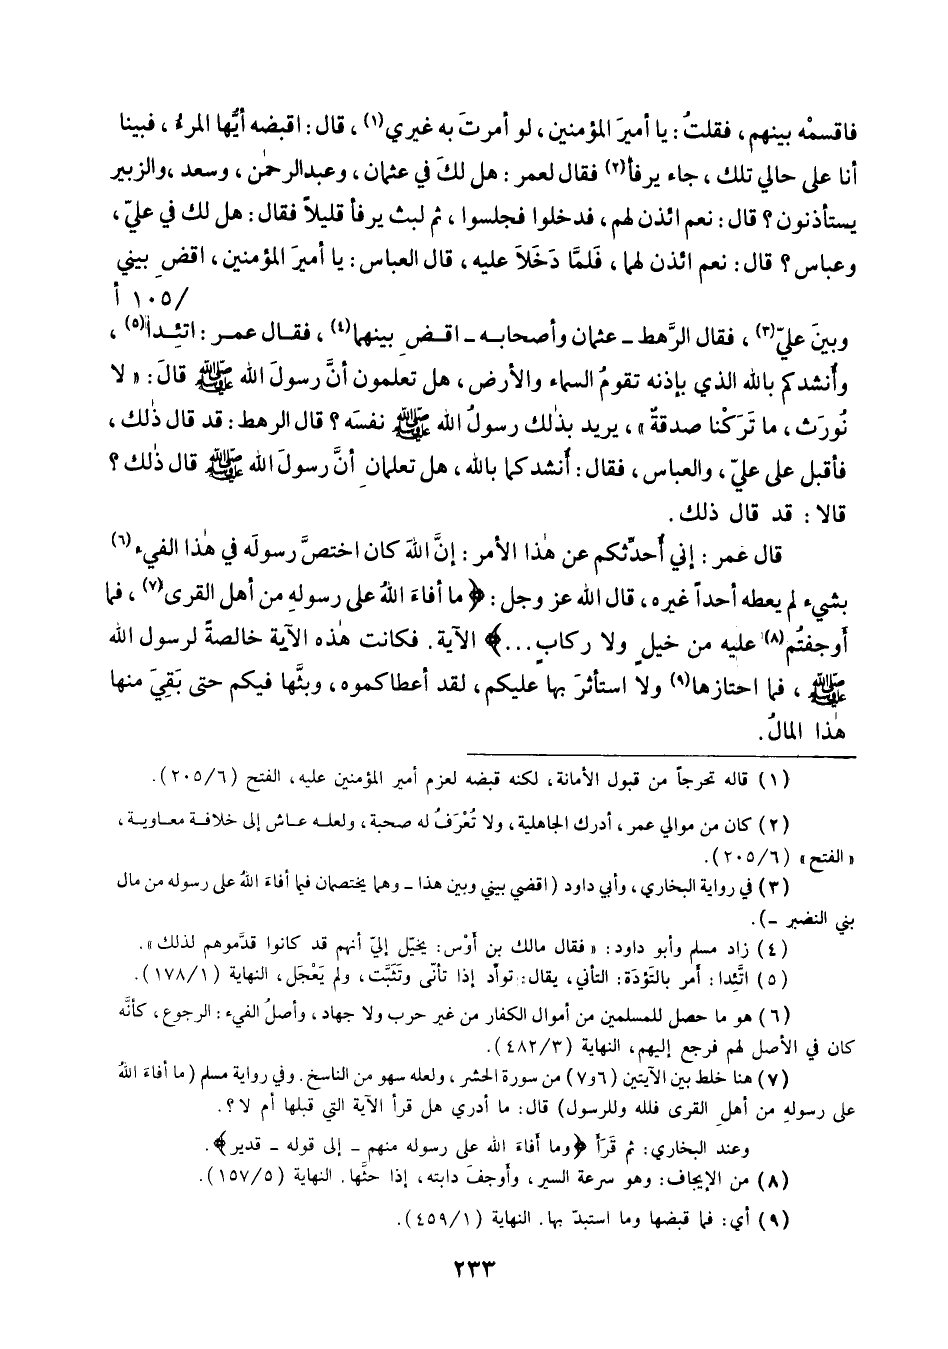 فاقسمْه بينهم، فقلتُ: يا أميرَ المؤمنين، لو أمرتَ به غيري(١)، قال: اقبضه أيُّها المرءُ، فبينا
أنا على حالي تلك، جاء يرفأ(٢) فقال لعمر: هل لكَ في عثمان، وعبدالرحمٰن، وسعد، والزبير
يستأذنون؟ قال: نعم ائذن لهم، فدخلوا فجلسوا، ثم لبث يرفأ قليلاً فقال: هل لك في عليّ،
وعباس؟ قال: نعم ائذن لهما، فَلمَّا دَخَلاَ عليه، قال العباس: يا أميرَ المؤمنين، اقضِ بيني
/١٠٥ أ
وبينَ عليّ(٣)، فقال الرَّهط ـ عثمان وأصحابه ـ اقضِ بينهما(٤)، فقال عمر: اتئِدا(٥)،
وأُنشدكم بالله الذي بإذنه تقومُ السماء والأرض، هل تعلمون أنَّ رسولَ الله ﷺ قالَ: « لا
نُورَث، ما تَرَكْنا صدقةٌ»، يريد بذٰلك رسولُ الله ﷺ نفسَه؟ قال الرهط: قد قال ذٰلك،
فأقبل على عليّ، والعباس، فقال: أُنشدكما بالله، هل تعلمانِ أنَّ رسولَ الله ﷺ قال ذٰلك؟
قالا: قد قال ذلك.
قال عمر: إني أُحدِّثكم عن هٰذا الأمر: إنَّ اللهَ كان اختصَّ رسولَه في هٰذا الفيء(٦)
بشيء لم يعطه أحداً غيره، قال الله عز وجل: ﴿ ما أفاءَ اللهُ على رسولهِ من أهل القرى(٧)، فما
أوجفتُم(٨) عليه من خيلٍ ولا ركابٍ...﴾ الآية. فكانت هٰذه الآية خالصةً لرسول الله
ﷺ، فما احتازها(٩) ولا استأثرَ بها عليكم، لقد أعطاكموه، وبثَّها فيكم حتى بَقِيَ منها
هٰذا المالُ.
(١) قاله تحرجاً من قبول الأمانة، لكنه قبضه لعزم أمير المؤمنين عليه، الفتح (٢٠٥/٦).
(٢) كان من موالي عمر، أدرك الجاهلية، ولا تُعْرَفُ له صحبة، ولعله عاش إلى خلافة معاوية،
« الفتح» (٢٠٥/٦).
(٣) في رواية البخاري، وأبي داود (اقضي بيني وبين هذا ـ وهما يختصمان فيما أفاءَ اللهُ على رسوله من مال
بني النضير ـ).
(٤) زاد مسلم وأبو داود: « فقال مالك بن أوْس: يخيّل إليّ أنهم قد كانوا قدَّموهم لذلك».
(٥) اتَّئِدا: أمر بالتؤَدَة: التأني، يقال: توأد إذا تأنّى وتَثَبَّت، ولم يَعْجَل، النهاية (١٧٨/١).
(٦) هو ما حصل للمسلمين من أموال الكفار من غير حرب ولا جهاد، وأصلُ الفيء: الرجوع، كأنَّه
كان في الأصل لهم فرجع إليهم، النهاية (٤٨٢/٣).
(٧) هنا خلط بين الآيتين (٦و٧) من سورة الحشر، ولعله سهو من الناسخ. وفي رواية مسلم (ما أفاءَ اللهُ
على رسولهِ من أهلِ القرى فلله وللرسول) قال: ما أدري هل قرأ الآية التي قبلها أم لا؟.
وعند البخاري: ثم قَرَأَ ﴿وما أَفاءَ الله على رسوله منهم ـ إلى قوله ـ قدير﴾.
(٨) من الإيجاف: وهو سرعة السير، وأوجفَ دابته، إذا حثَّها. النهاية (١٥٧/٥).
(٩) أي: فما قبضها وما استبدّ بها. النهاية (٤٥٩/١).
٢٣٣